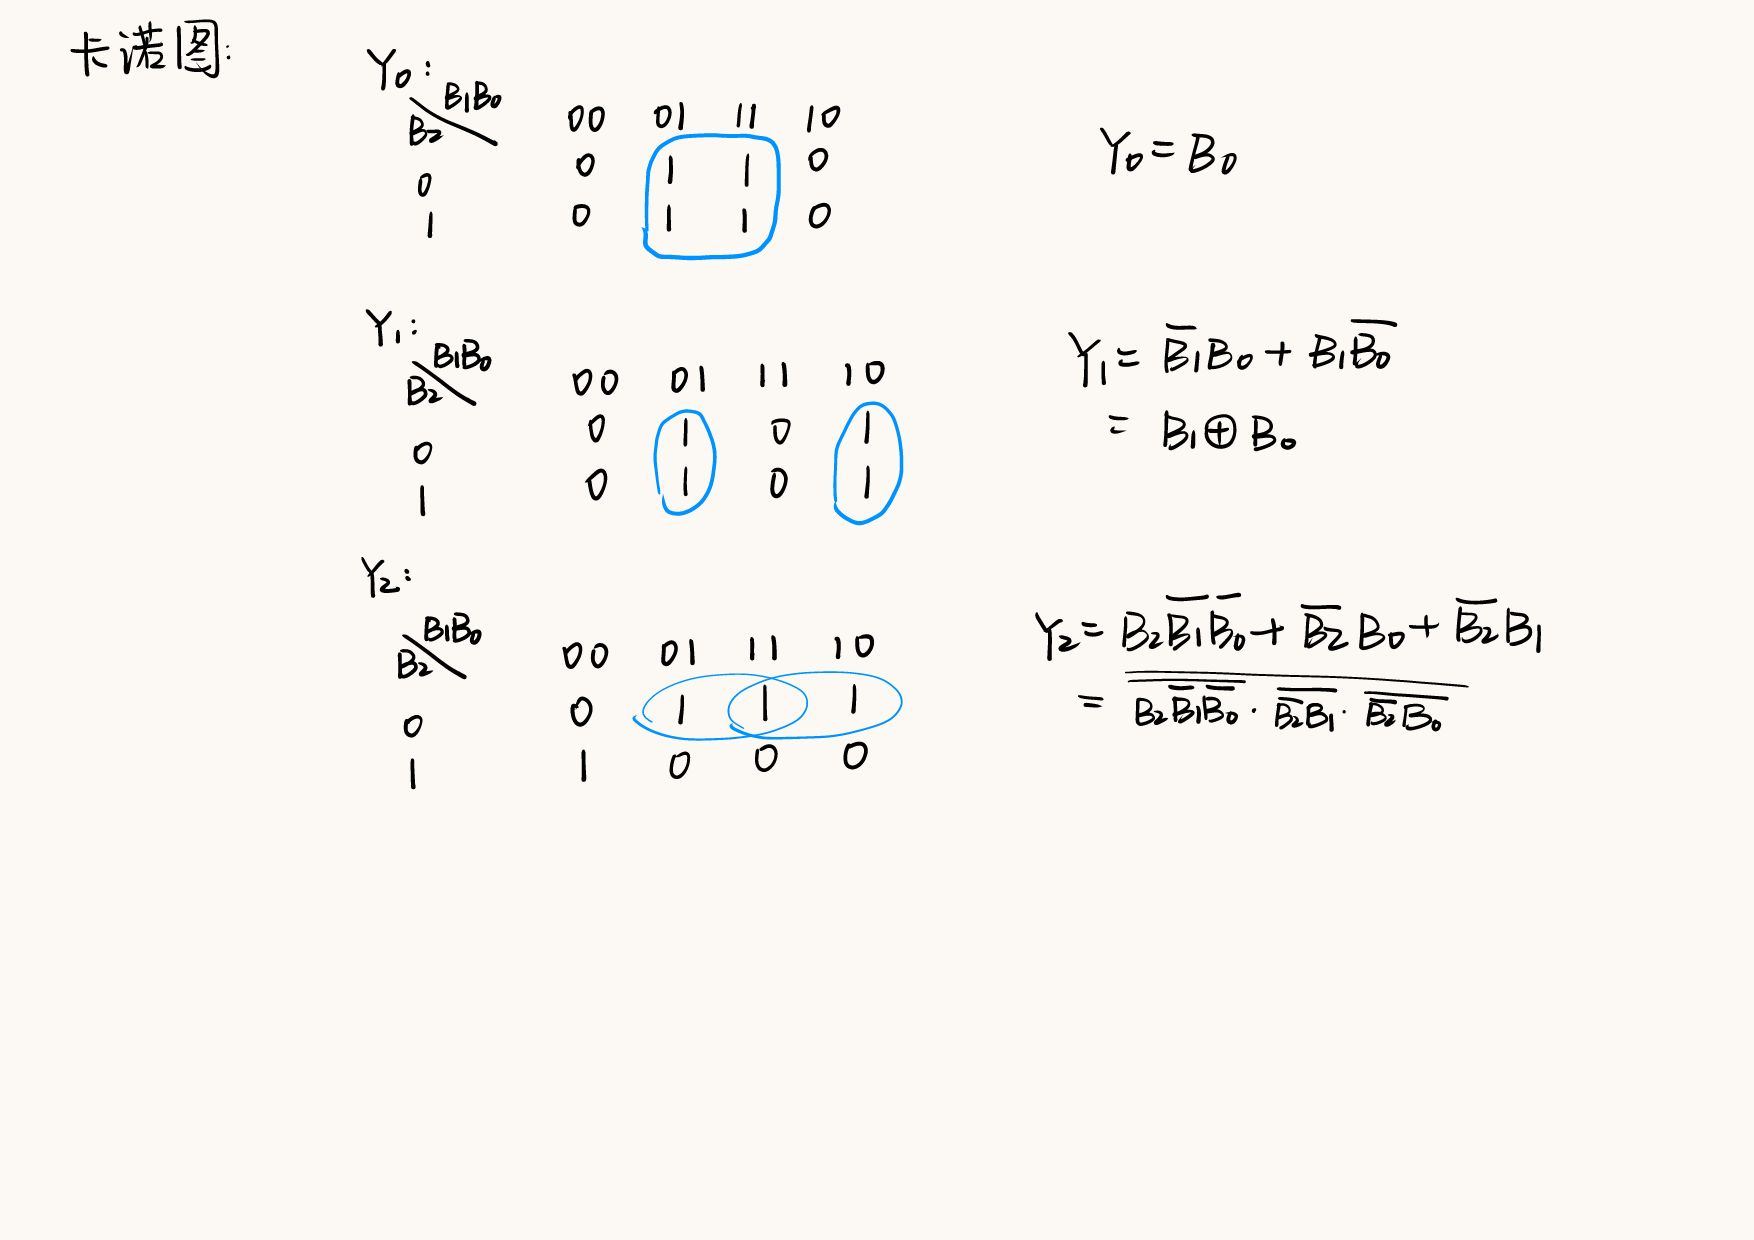 卡诺图:
Y₀:
B₁B₀
B₂
00 01 11 10
0 0 1 1 0
1 0 1 1 0
Y₀ = B₀
Y₁:
B₁B₀
B₂
00 01 11 10
0 0 1 0 1
1 0 1 0 1
Y₁ = \overline{B₁}B₀ + B₁\overline{B₀}
= B₁⊕B₀
Y₂:
B₁B₀
B₂
00 01 11 10
0 0 1 1 1
1 1 0 0 0
Y₂ = B₂\overline{B₁}\overline{B₀} + \overline{B₂}B₀ + \overline{B₂}B₁
= \overline{\overline{B₂\overline{B₁}\overline{B₀}} · \overline{\overline{B₂}B₁} · \overline{\overline{B₂}B₀}}